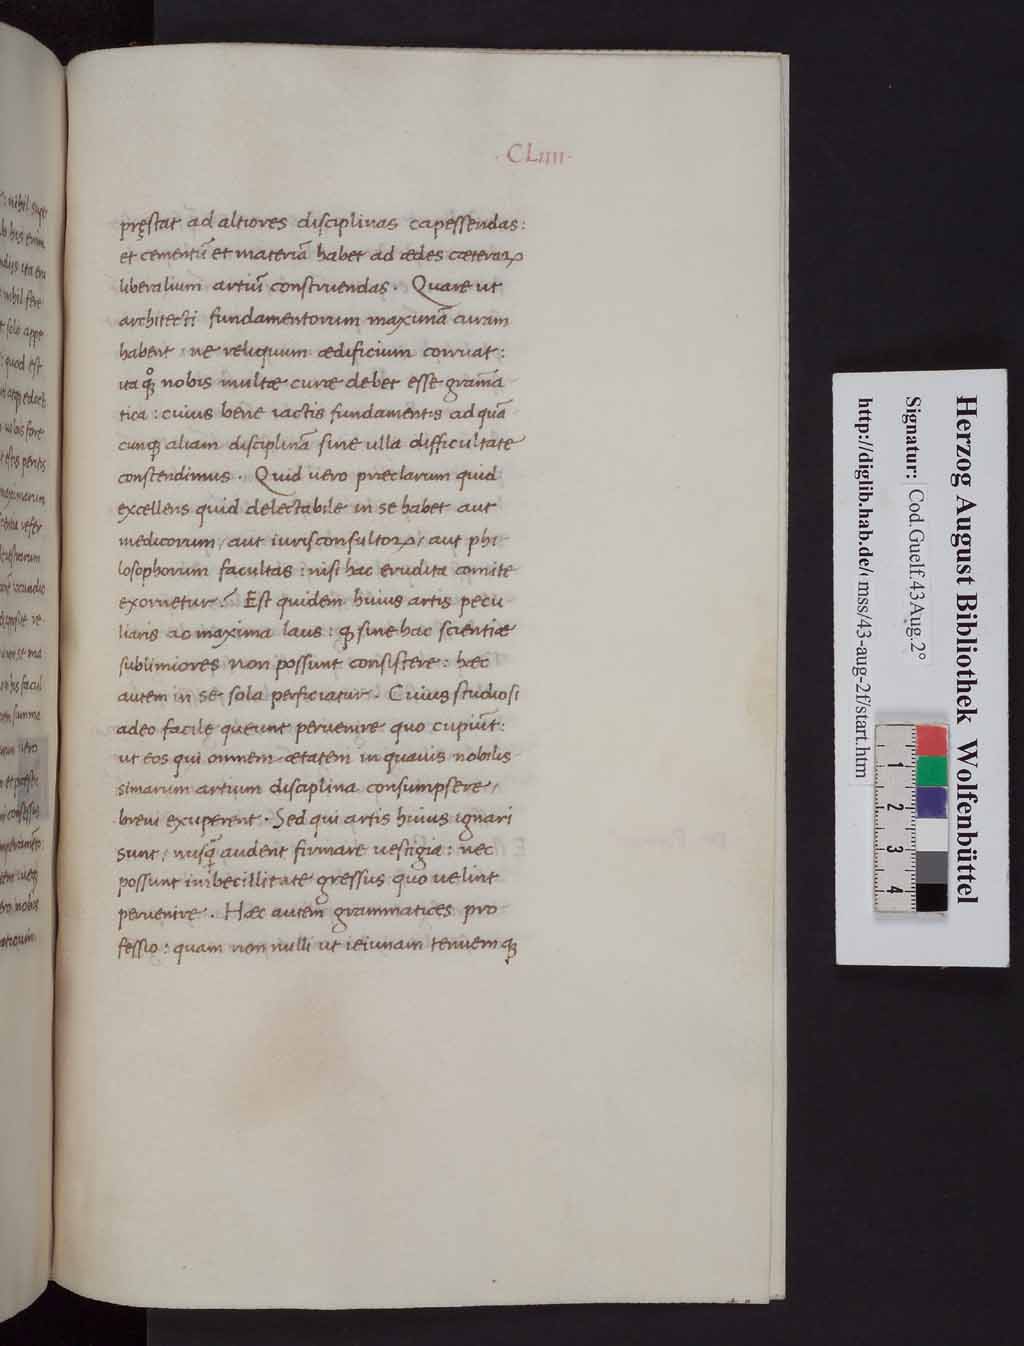 · CLIIII ·
pręstat ad altiores disciplinas capessendas:
et cementū et materiā habet ad ædes cæteraꝝ
liberalium artiū construendas. Quare ut
architecti fundamentorum maximā curam
habent: ne reliquum ædificium corruat:
ita qͦꝗ nobis multæ curæ debet esse gramā
tica: cuius bene iactis fundamentis ad quā
cunqꝫ aliam disciplinā sine ulla difficultate
conscendimus. Quid uero præclarum quid
excellens quid delectabile in se habet aut
medicorum/ aut iurisconsultoꝝ/ aut phi
losophorum facultas: nisi hac erudita comite
exornetur? Est quidem huius artis pecu
liaris ac maxima laus: ꝙ sine hac scientiæ
sublimiores non possunt consistere: hæc
autem in se sola perficiatur. Cuius studiosi
adeo facile queunt peruenire quo cupiūt:
ut eos qui omnem ætatem in quauis nobilis
simarum artium disciplina consumpsere/
breui exuperent. Sed qui artis huius ignari
sunt/ nusq̄ audent firmare uestigia: nec
possunt imbecillitate gressus quo uelint
peruenire. Hæc autem grammatices pro
fessio: quam non nulli ut ieiunam tenuemqꝫ
Herzog August Bibliothek Wolfenbüttel
Signatur: Cod.Guelf.43 Aug.2°
http://diglib.hab.de/mss/43-aug-2f/start.htm
1
2
3
4